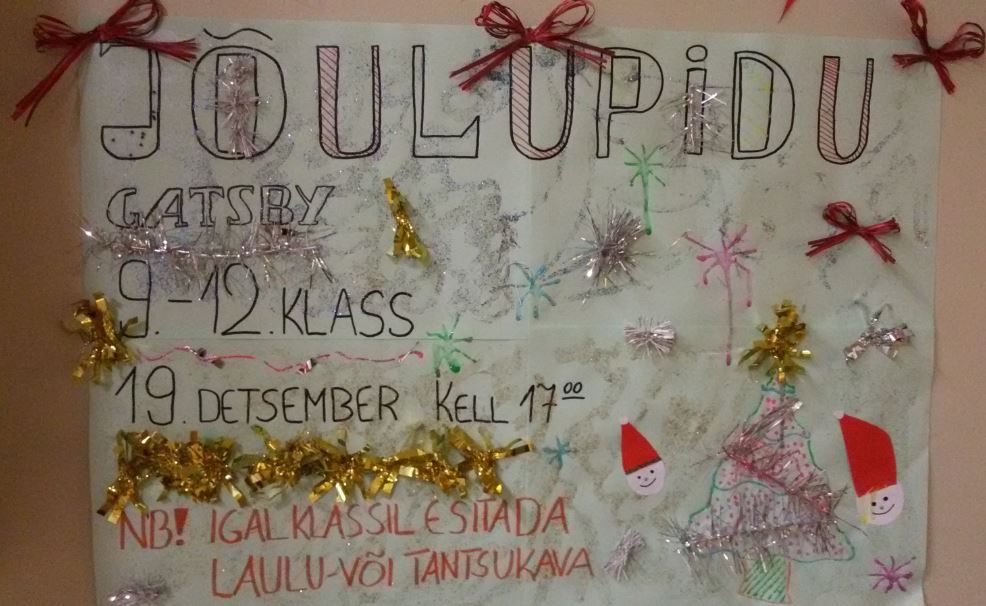 JÕULUPiDU
GATSBY
9.-12. KLASS
19. DETSEMBER KELL 17⁰⁰
NB! IGAL KLASSIL ESITADA
LAULU-VÕI TANTSUKAVA